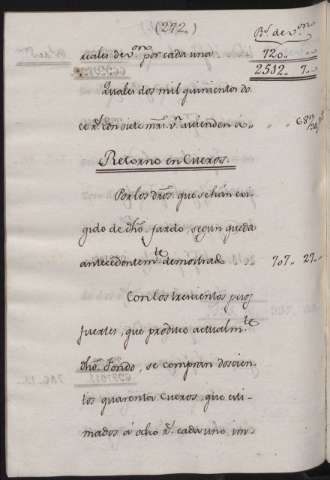 (272)
R.s de v.on
reales de v.on por cada una 720..
2512.. 7..
Quales dos mil quinientos do
ce r.s con siete mrs. v.n
Retorno en Cueros.
Por los dros. que se hán exi-
gido de dho. fardo, segun queda
antecedentem.te demostrad 707.. 27..
Con los trescientos pesos
fuertes, que produce actualm.te
dho. Fondo, se compran doscien-
tos quarenta Cueros, que esti-
mados á ocho r.s cada uno, im-